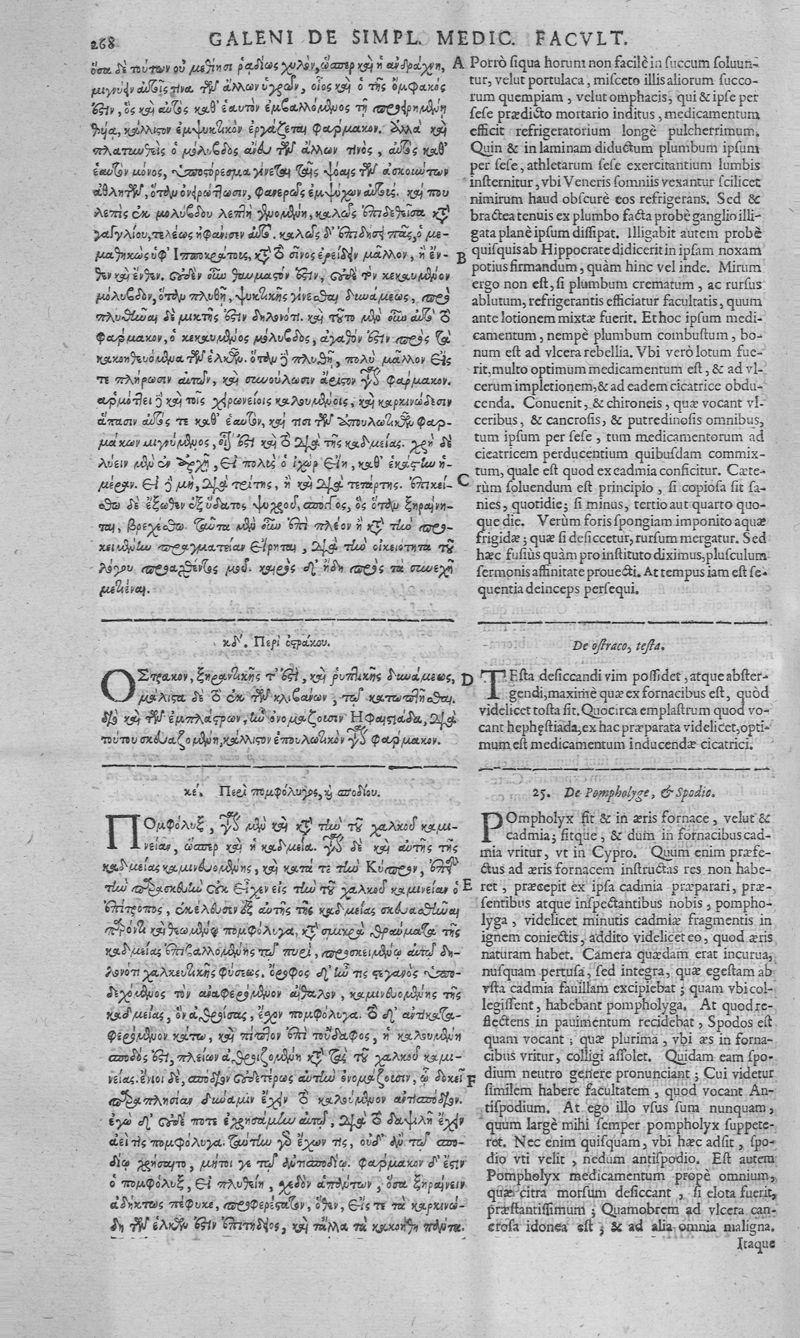 268 GALENI DE SIMPL. MEDIC. FACVLT.
ὅσα δὲ τούτων οὐ μεθίησι ῥᾳδίως χυλὸν, ὥσπερ καὶ ἡ ἀνδράχνη,
μιγνὺν αὐτοῖς τινα τῶν ἄλλων ὑγρῶν, οἷος καὶ ὁ τῆς ὄμφακός
ἐστιν, ὃς καὶ αὐτὸς καθ' ἑαυτὸν ἐμβαλλόμενος τῇ προειρημένῃ
θυίᾳ, κάλλιστον ἐμψυκτικὸν ἐργάζεται φάρμακον. ἀλλὰ καὶ
πλατυνθεὶς ὁ μόλυβδος ἄνευ τῶν ἄλλων τινὸς, αὐτὸς καθ'
ἑαυτὸν μόνος, ὑπόστρεσμα γίνεται ταῖς ψόαις τῶν ἀσκούντων
ἀθλητῶν, ὅταν ὀνειρώττωσιν, φανερῶς ἐμψύχων αὐτούς. καί που
λεπὶς ἐκ μολύβδου λεπτὴ γενομένη, καλῶς ἐπιδεθεῖσα κατὰ
γαγγλίου, τελέως ἠφάνισεν αὐτό. καλῶς δ' ἐπιδήσει πᾶς, ὁ με-
μαθηκὼς ὑφ' Ἱπποκράτους, κατὰ τὸ σῖνος ἐρείδειν μᾶλλον, ἢ ἔν-
θεν καὶ ἔνθεν. οὐδὲν οὖν θαυμαστόν ἐστιν, οὐδὲ τὸν κεκαυμένον
μόλυβδον, ὅταν πλυθῇ, ψυκτικῆς γίνεσθαι δυνάμεως, πρὸ τοῦ
πλυθῆναι δὲ μικτῆς ἐστιν δηλονότι. καὶ τοῦτο μὲν οὖν αὐτὸ τὸ
φάρμακον, ὁ κεκαυμένος μόλυβδος, ἀγαθόν ἐστιν πρὸς τὰ
κακοηθευόμενα τῶν ἑλκῶν. ὅταν δὲ πλυθῇ, πολὺ μᾶλλον εἴς
τε πλήρωσιν αὐτῶν, καὶ συνούλωσιν ἄριστον γίνεται φάρμακον.
ἁρμόττει δὲ καὶ τοῖς χειρωνείοις καλουμένοις, καὶ καρκινώδεσιν
ἅπασιν αὐτός τε καθ' ἑαυτὸν, καί τισι τῶν ἐπουλωτικῶν φαρ-
μάκων μιγνύμενος, οἷόν ἐστι καὶ τὸ διὰ τῆς καδμείας. χρὴ δὲ
λύειν μὲν ἐν ἀρχῇ, εἰ πολὺς ὁ ἰχὼρ εἴη, καθ' ἑκάστην ἡ-
μέραν. εἰ δὲ μὴ, διὰ τρίτης, ἢ καὶ διὰ τετάρτης. ἐπικεί-
σθω δὲ ἔξωθεν ἐξ ὕδατος ψυχροῦ, σπόγγος, ὃς ὅταν ξηραίνη-
ται, βρεχέσθω. ταῦτα μὲν οὖν ἐπὶ πλέον ἢ κατὰ τὴν προ-
κειμένην πραγματείαν εἴρηται, διὰ τὴν οἰκειότητα τοῦ
λόγου προαχθέντος μου. καιρὸς δ' ἤδη πρὸς τὰ συνεχῆ
μετιέναι.
κδ'. Περὶ ὀστράκου.
ΟΣτρακον, ξηραντικῆς τ' ἐστὶ, καὶ ῥυπτικῆς δυνάμεως,
μάλιστα δὲ τὸ ἐκ τῶν κλιβάνων, τῷ κατωπτῆσθαι.
διὸ καὶ τῶν ἐμπλάστρων, ἣν ὀνομάζουσιν Ἡφαιστιάδα, διὰ
τούτου σκευαζομένη, κάλλιστον ἐπουλωτικὸν γίνεται φάρμακον.
κε'. Περὶ πομφόλυγος, καὶ σποδίου.
ΠΟμφόλυξ, γίνεται μὲν καὶ κατὰ τὴν τοῦ χαλκοῦ καμι-
νείαν, ὥσπερ καὶ ἡ καδμεία. γίνεται δὲ καὶ αὐτῆς τῆς
καδμείας καμινευομένης, καὶ κατά τε τὴν Κύπρον, ἐπεὶ
τὴν παρασκευὴν οὐκ εἶχεν εἰς τὴν τοῦ χαλκοῦ καμινείαν ὁ
ἐπίτροπος, ἐκέλευσεν ἐξ αὐτῆς τῆς καδμείας σκευασθῆναι
παρόντι καὶ θεωμένῳ πομφόλυγα, κατὰ σμικρὰ θραύματα τῆς
καδμείας ἐπιβαλλομένης τῷ πυρὶ, προσκειμένῳ αὐτῷ δη-
λονότι χαλκευτικῆς φύσεως. ὄροφος δ' ἦν τις στεγανὸς ὑπο-
δεχόμενος τὸν ἀναφερόμενον αἴθαλον, καμινευομένης τῆς
καδμείας, ὃν ἀθροίσας, ἔχον πομφόλυγα. τὸ δ' ἀντικατα-
φερόμενον κάτω, καὶ πίπτον ἐπὶ τοὔδαφος, ἡ καλουμένη
σποδός ἐστι, πλείων ἀθροιζομένη κατὰ τὰς τοῦ χαλκοῦ καμι-
νείας. ἔνιοι δὲ, σπόδιον οὐδετέρως αὐτὴν ὀνομάζουσιν, ᾧ δοκεῖ
παραπλησίαν δύναμιν ἔχειν τὸ καλούμενον ἀντίσποδον.
ἐγὼ δ' οὐδέ ποτε ἐχρησάμην αὐτῷ, διὰ τὸ δαψιλῆ ἔχειν
ἀεὶ τὴν πομφόλυγα. ταύτην γὰρ ἔχων τις, οὐδ' ἂν τῷ σπο-
δίῳ χρήσαιτο, μήτοι γε τῷ ἀντισποδίῳ. φάρμακον δ' ἐστὶν
ὁ πομφόλυξ, εἰ πλυθείη, σχεδὸν ἁπάντων, ὅσα ξηραίνειν
ἀδήκτως πέφυκε, προφερέστατον, ὅθεν, εἴς τε τὰ καρκινώ-
δη τῶν ἑλκῶν ἐστιν ἐπιτήδειος, καὶ τἄλλα τὰ κακοήθη πάντα.
A Porrò siqua horum non facilè in succum soluun-
tur, velut portulaca, misceto illis aliorum succo-
rum quempiam, velut omphacis, qui & ipse per
sese prædicto mortario inditus, medicamentum
efficit refrigeratorium longè pulcherrimum.
Quin & in laminam diductum plumbum ipsum
per sese, athletarum sese exercitantium lumbis
insternitur, vbi Veneris somniis vexantur scilicet
nimirum haud obscurè eos refrigerans. Sed &
bractea tenuis ex plumbo facta probè ganglio illi-
gata planè ipsum dissipat. Illigabit autem probè
B quisquis ab Hippocrate didicerit in ipsam noxam
potius firmandum, quàm hinc vel inde. Mirum
ergo non est, si plumbum crematum, ac rursus
ablutum, refrigerantis efficiatur facultatis, quum
ante lotionem mixtæ fuerit. Et hoc ipsum medi-
camentum, nempè plumbum combustum, bo-
num est ad vlcera rebellia. Vbi verò lotum fue-
rit, multo optimum medicamentum est, & ad vl-
cerum impletionem, & ad eadem cicatrice obdu-
cenda. Conuenit, & chironeis, quæ vocant vl-
ceribus, & cancrosis, & putredinosis omnibus,
tum ipsum per sese, tum medicamentorum ad
cicatricem perducentium quibusdam commix-
C tum, quale est quod ex cadmia conficitur. Cæte-
rùm soluendum est principio, si copiosa sit sa-
nies, quotidie; si minus, tertio aut quarto quo-
que die. Verùm foris spongiam imponito aquæ
frigidæ; quæ si desiccetur, rursum mergatur. Sed
hæc fusiùs quàm pro instituto diximus, plusculum
sermonis affinitate prouecti. At tempus iam est se-
quentia deinceps persequi.
De ostraco, testa.
D TEsta desiccandi vim possidet, atque abster-
gendi, maximè quæ ex fornacibus est, quòd
videlicet tosta sit. Quocirca emplastrum quod vo-
cant hephęstiada, ex hac præparata videlicet, opti-
mum est medicamentum inducendæ cicatrici.
25. De Pompholyge, & Spodio.
POmpholyx fit & in æris fornace, velut &
cadmia; fitque, & dum in fornacibus cad-
mia vritur, vt in Cypro. Quum enim præfe-
ctus ad æris fornacem instructas res non habe-
E ret, præcepit ex ipsa cadmia præparari, præ-
sentibus atque inspectantibus nobis, pompho-
lyga, videlicet minutis cadmiæ fragmentis in
ignem coniectis, addito videlicet eo, quod æris
naturam habet. Camera quædam erat incurua,
nusquam pertusa, sed integra, quæ egestam ab
vsta cadmia fauillam excipiebat; quam vbi col-
legissent, habebant pompholyga. At quod re-
flectens in pauimentum recidebat, Spodos est
quam vocant; quæ plurima, vbi æs in forna-
cibus vritur, colligi assolet. Quidam eam spo-
F dium neutro genere pronunciant; Cui videtur
similem habere facultatem, quod vocant An-
tispodium. At ego illo vsus sum nunquam,
quum largè mihi semper pompholyx suppete-
ret. Nec enim quisquam, vbi hæc adsit, spo-
dio vti velit, nedum antispodio. Est autem
Pompholyx medicamentum propè omnium,
quæ citra morsum desiccant, si elota fuerit,
præstantissimum; Quamobrem ad vlcera can-
crosa idonea est; & ad alia omnia maligna.
Itaque